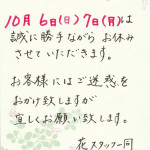 10月6日(日)7日(月)は
誠に勝手ながら お休み
させていただきます。
お客様にはご迷惑を
おかけ致しますが
宜しくお願い致します。
花スタッフ一同